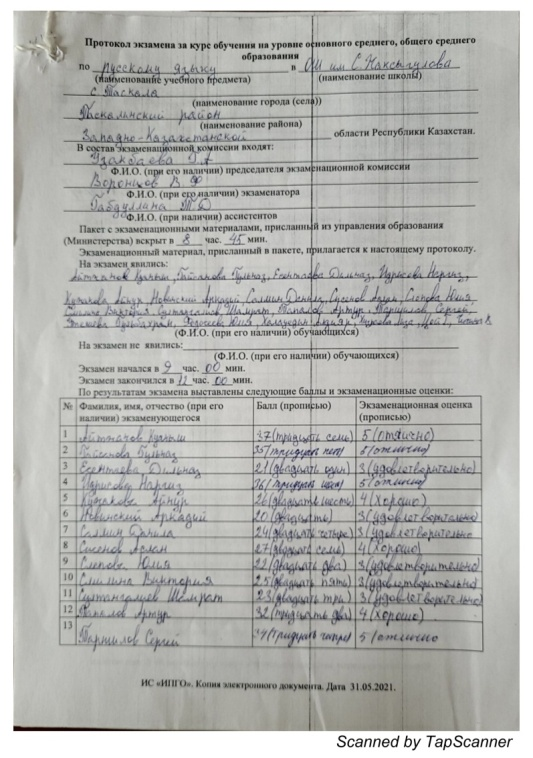 Протокол экзамена за курс обучения на уровне основного среднего, общего среднего
образования
по русскому языку в ОШ им С. Жаксыгулова
(наименование учебного предмета) (наименование школы)
с Таскала
(наименование города (села))
Таскалинский район
(наименование района)
Западно-Казахстанской области Республики Казахстан.
В состав экзаменационной комиссии входят:
Узакбаева
Ф.И.О. (при его наличии) председателя экзаменационной комиссии
Воронцов В. Ф
Ф.И.О. (при его наличии) экзаменатора
Габдуллина Т.Б
Ф.И.О. (при наличии) ассистентов
Пакет с экзаменационными материалами, присланный из управления образования
(Министерства) вскрыт в 8 час. 45 мин.
Экзаменационный материал, присланный в пакете, прилагается к настоящему протоколу.
На экзамен явились:
Гульназ, Есентаева Дильназ, Идрисова Наргиз,
Айнур, Невинский Аркадий, Салмин Данила, Сисенов Аслан, Слепова Юлия,
Виктория, Султангалиев Шамрат, Папалов Артур, Паршилов Сергей,
Юлия
(Ф.И.О. (при его наличии) обучающихся)
На экзамен не явились:
(Ф.И.О. (при его наличии) обучающихся)
Экзамен начался в 9 час. 00 мин.
Экзамен закончился в 12 час. 00 мин.
По результатам экзамена выставлены следующие баллы и экзаменационные оценки:
№ Фамилия, имя, отчество (при его наличии) экзаменующегося Балл (прописью) Экзаменационная оценка (прописью)
1 Куаныш 37 (тридцать семь) 5 (отлично)
2 Гульназ 35 (тридцать пять) 5 (отлично)
3 Есентаева Дильназ 21 (двадцать один) 3 (удовлетворительно)
4 Идрисова Наргиз 36 (тридцать шесть) 5 (отлично)
5 Айнур 26 (двадцать шесть) 4 (хорошо)
6 Невинский Аркадий 20 (двадцать) 3 (удовлетворительно)
7 Салмин Данила 24 (двадцать четыре) 3 (удовлетворительно
8 Сисенов Аслан 27 (двадцать семь) 4 (хорошо)
9 Слепова Юлия 22 (двадцать два) 3 (удовлетворительно)
10 Виктория 25 (двадцать пять) 3 (удовлетворительно)
11 Султангалиев Шамрат 23 (двадцать три) 3 (удовлетворительно)
12 Папалов Артур 32 (тридцать два) 4 (хорошо)
13 Паршилов Сергей 34 (тридцать четыре) 5 (отлично
ИС «ИПГО». Копия электронного документа. Дата 31.05.2021.
Scanned by TapScanner